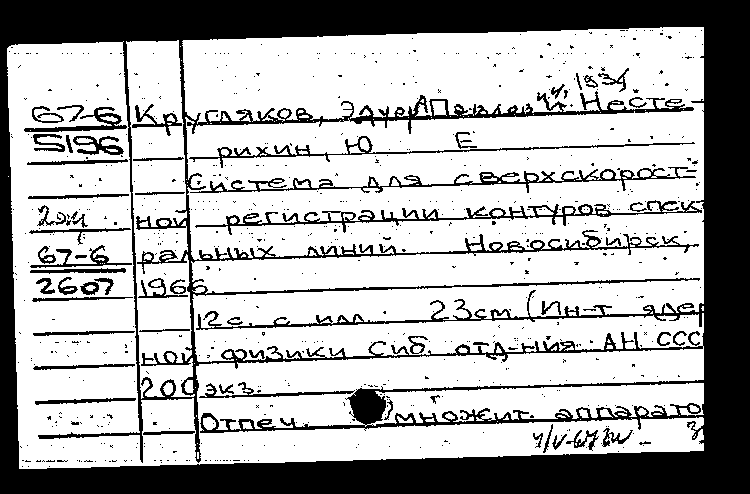 1934
67-6 Кругляков, Эдуард Павлович и Несте-
5196 рихин, Ю Е
Система для сверхскорост-
2эм ной регистрации контуров спек
67-6 ральных линий. Новосибирск,
2607 1966.
12 с. с илл. 23 см (Ин-т ядер
ной физики Сиб. отд-ния АН ССС
200 экз.
Отпеч. множит. аппарато